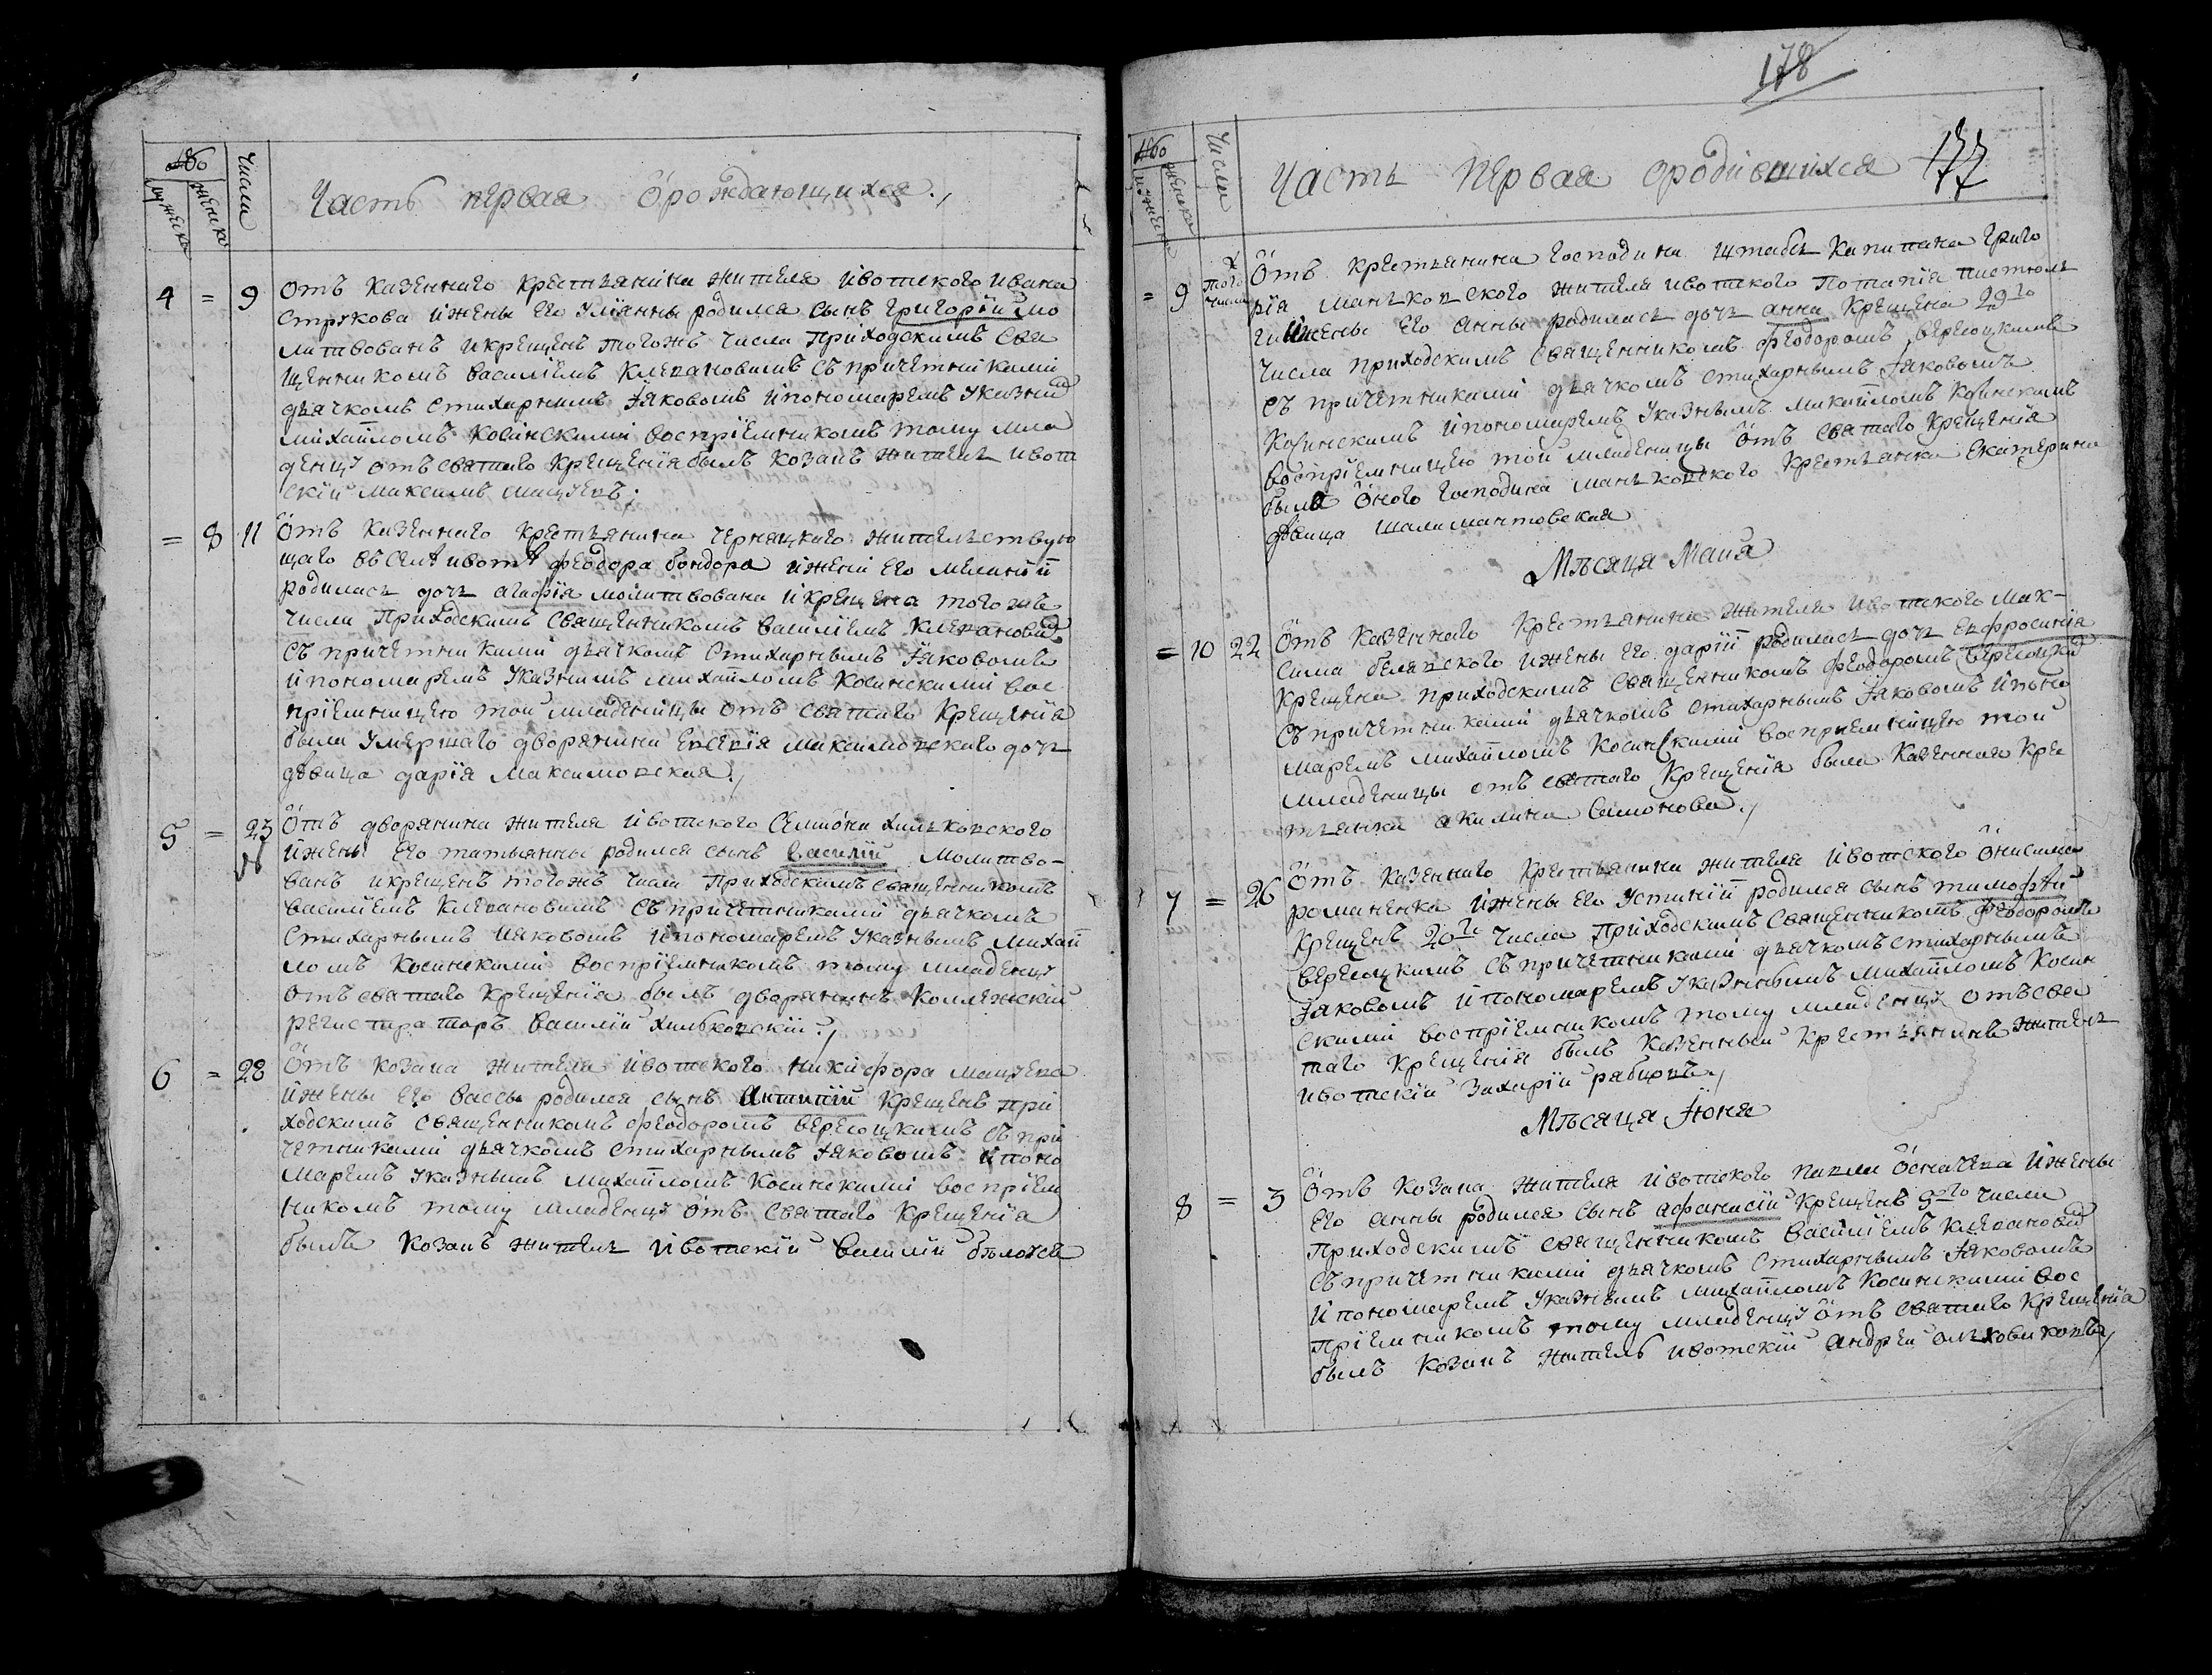 Число
мужеска
женска
Часть первая ÖрождающихсЯ.,
4 = 9 отъ казеннаго крестьянина жителя ивотского ивана
стрѫкова ижены его Улїанны родился сынъ григорїй мо
литвованъ икрещенъ тогожъ числа Приходскимъ свя
щенникомъ василїемъ клевановымъ съ причетниками
дьячкомъ стихарнымъ Іаковомъ ипономаремъ Указным
михаиломъ косинскими воспрїемникомъ тому мла
денцу отъ святаго крещенїя былъ козакъ житель ивот
скїй максимъ мацуевъ;
= 8 11 Отъ казеннаго крестьянина чернацкаго жительствую
щаго въ селѣ ивотѣ феодора бондора ижени его меланїи
родилась дочь агафїя молитвована икрещена тогожъ
числа Приходскимъ священникомъ василїемъ клевановым
съ причетниками дьячкомъ стихарнымъ Іаковомъ
ипономаремъ Указнымъ михаиломъ косинскими вос
прїемницею той младеницы отъ святаго крещенїя
была умершаго дворянина максимовского дочь
дѣвица дарїя максимовская.,
5 = 23 Отъ дворянина жителя ивотского семиона хильковского
ижены его татьянны родился сынъ василїй молитво-
ванъ икрещенъ тогожъ числа Приходскимъ священникомъ
василїемъ клевановымъ съ причетниками дьячкомъ
стихарнымъ Иаковомъ ипономаремъ Указнымъ михаи
ломъ косинскими воспрїемникомъ тому младенцу
отъ святаго крещенїя былъ дворянинъ коллежскїй
регистраторъ василїй хильковскїй.,
6 = 28 Отъ козака жителя ивотского никифора мацуева
ижены его вассы родился сынъ Антипїй крещенъ при
ходскимъ священникомъ феодоромъ верецкимъ съ при
четниками дьячкомъ стихарнымъ Іаковомъ ипоно
маремъ Указнымъ михаиломъ косинскими воспрїем
никомъ тому младенцу отъ святаго крещенїя
былъ козакъ житель ивотскїй василїй
178
177
Число
Часть первая ородившихся
= 9 того числа Отъ крестьянина господина штабсъ капитана григо
рїя маньковского жителя ивотского Потапїя
ижены его анны родилась дочь анна крещена 29го
числа приходскимъ священникомъ феодоромъ верецкимъ
съ причетниками дьячкомъ стихарнымъ Іаковомъ
косинскимъ ипономаремъ Указнымъ михаиломъ косинскимъ
воспрїемницею той младеницы отъ святаго крещенїя
была оного господина маньковского крестьянка екатерина
дѣвица
Мѣсяца Маия
= 10 22 Отъ казеннаго крестьянина жителя ивотского мак-
сима белявского ижены его дарїи родилась дочь евфросинїя
крещена приходскимъ священникомъ феодоромъ верецким
съ причетниками дьячкомъ стихарнымъ Іаковомъ ипоно
маремъ михаиломъ косинскими воспрїемницею той
младеницы отъ святаго крещенїя была казенная кре
стьянка акилина самонова.,
7 = 26 Отъ казеннаго крестьянина жителя ивотского онисима
романенка ижены его Устинїи родился сынъ тимофѣй
крещенъ 26го числа Приходскимъ священникомъ феодоромъ
верецкимъ съ причетниками дьячкомъ стихарнымъ
Іаковомъ ипономаремъ Указнымъ михаиломъ косин
скими воспрїемникомъ тому младенцу отъ свя
таго крещенїя былъ казенный крестьянинъ житель
ивотскїй захарїй рябцовъ.,
Мѣсяца Іюня
8 = 3 Отъ козака жителя ивотского павла осмачева ижены
его анны родился сынъ афанасїй крещенъ 3го числа
Приходскимъ священникомъ василїемъ клевановым
съ причетниками дьячкомъ стихарнымъ Іаковомъ
ипономаремъ Указнымъ михаиломъ косинскими вос
прїемникомъ тому младенцу отъ святаго крещенїя
былъ козакъ житель ивотскїй андрей ольховиковъ,